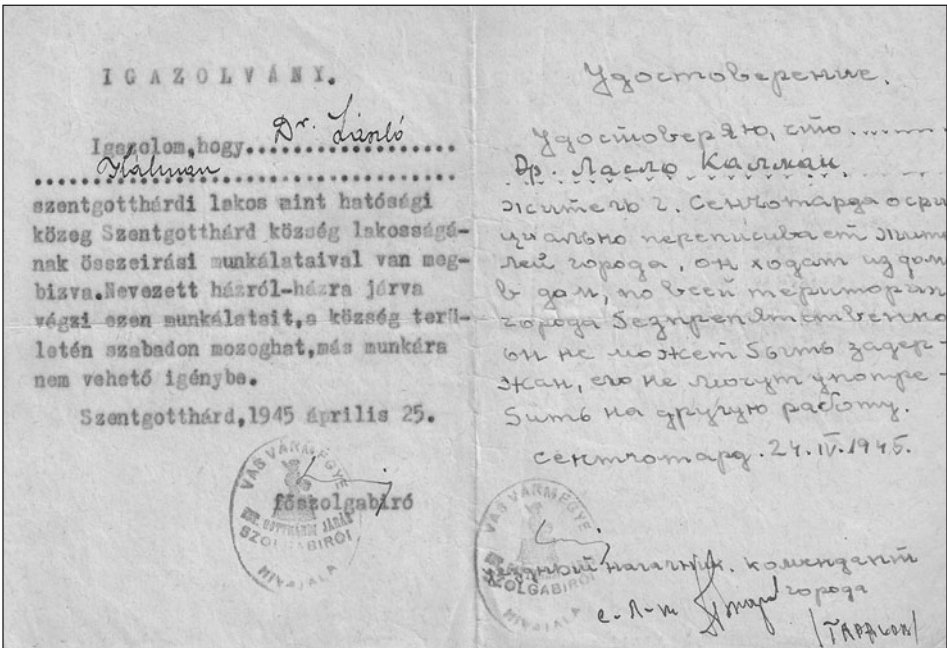 IGAZOLVÁNY.
Igazolom,hogy..Dr. László
Kálmán
szentgotthárdi lakos mint hatósági
közeg Szentgotthárd község lakosságá-
nak összeirási munkálataival van meg-
bizva.Nevezett házról-házra járva
végzi ezen munkálatait,a község terü-
letén szabadon mozoghat,más munkára
nem vehető igénybe.
Szentgotthárd,1945 április 25.
főszolgabíró
VAS VÁRMEGYE
SZT. GOTTHÁRDI JÁRÁS
SZOLGABIRÓI
HIVATALA
Удостоверение.
Удостоверяю, что
Др. Ласло Калман
житель г. Сенготарда офи
циально переписывает жите
лей города, он ходит из дом
в дом, по всей територии
города безпрепятственно
он не может быть задер-
жан, его не могут употре-
бить на другую работу.
сентготард. 24.IV.1945.
VAS VÁRMEGYE
SZOLGABIRÓI
HIVATALA
уездный начальник. комендант
с. л-т города